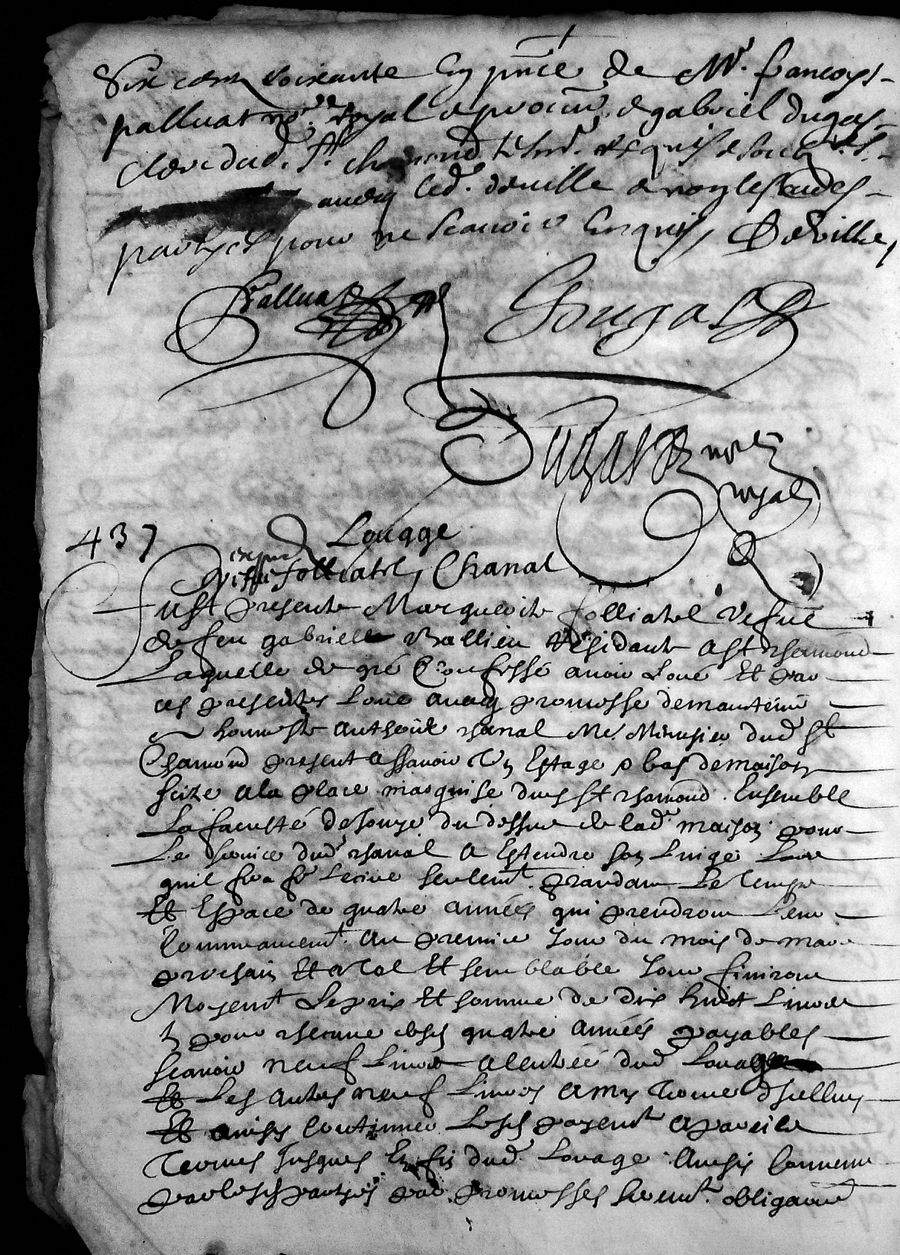 Six cens soixante En p̃nce de Mr. francoys
palluat nore. royal & procur. & gabriel dugas
Clerc dud. St. chamond tesm. requis & soubz.
avecq led. deville & non lesd
partyes pour ne scavoir Enquis, Deville,
Palluat Dugas
Dugas nore
royal
437 Louage
expedié
folliatel, Chanal
fust presente Marguerite folliatel vefue
de feu gabriel Vallieu residante a St chamond
Laquelle de gré Confesse avoir Loué Et par
ces presentes Loue avecq promesse de mautenir
a honneste anthoine chanal Me Menusier dud St
Chamond present assavoir Un Estage bas de maison
scize a la place marquise dud St chamond. Ensemble
La faculté de jouyr du dessus de lad. maison pour
Le service dud. chanal a Estendre son Linge Lors
quil fera sa Lecive seulemt. pandant Le temps
Et Espace de quatre années qui prendront Leur
Commancemt. au premier jour du mois de mars
prochain Et a tel Et semblable jour finiront
Moyent Le prix Et somme de dix huict Livres
t. pour chacune desd quatre années payables
scavoir neuf Livres a lentrée dud. Louage
Et Les autres neuf Livres a my terme dicelluy
Et ainsy continuer Lesd payemt a pareils
Termes jusques En fin dud. Louage Ainsy Convenu
par lesd partyes par promesses sermt. obligaõns